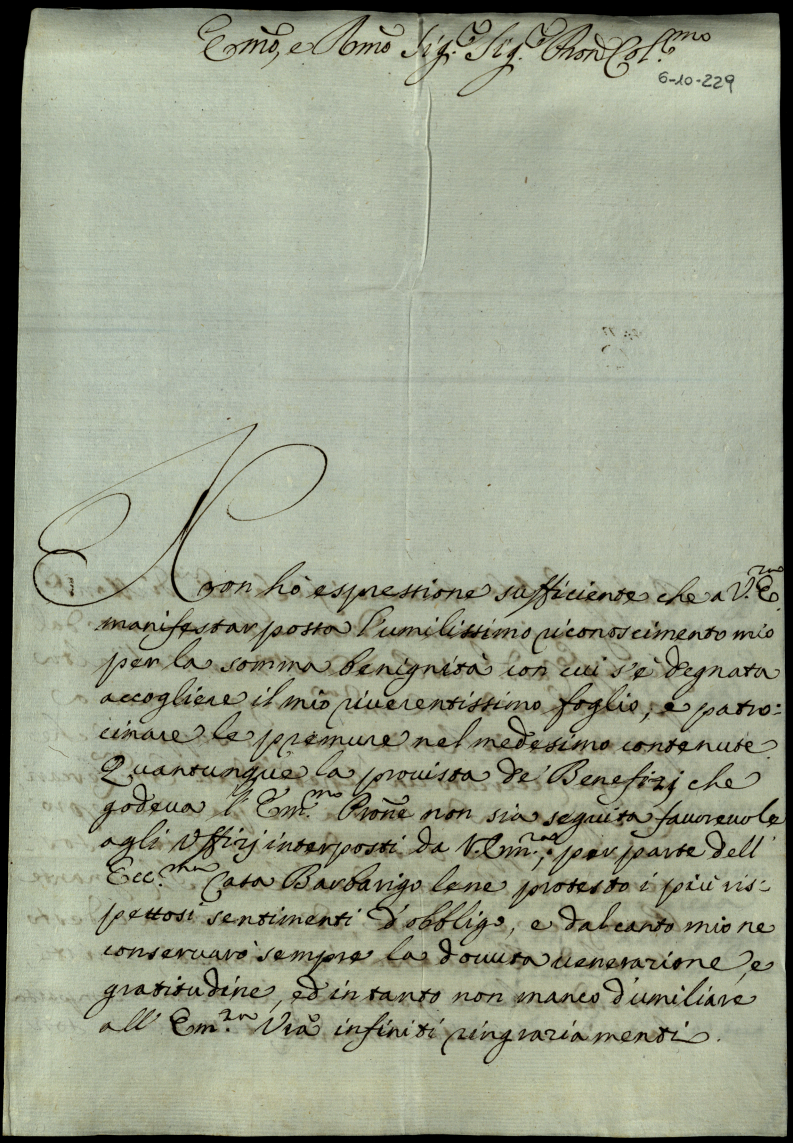 Em̃o, e Rm̃o Sig.e Sig.e Pron Col.mo
6-10-229
Non hò espressione sufficiente che a V. E.
manifestar possa l'umilissimo riconoscimento mio
per la somma benignità con cui s'è degnata
accogliere il mio riverentissimo foglio, e patro:
cinare le premure nel medesimo contenute.
Quantunque la provista de' Benefizj che
godeva l'Em.mo Proñe non sia seguita favorevole
agli Uffizj interposti da V. Em.za, per parte dell'
Ecc.ma Casa Barbarigo lene protesto i più ris:
pettosi sentimenti d'obbligo, e dal canto mio ne
conservarò sempre la dovuta venerazione, e
gratitudine, ed in tanto non manco d'umiliare
all' Em.za Vrã infiniti ringraziamenti.